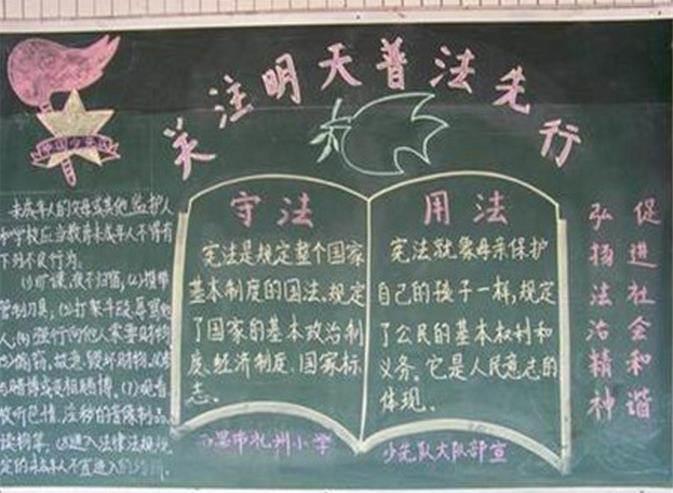 关注明天普法先行
中国少先队
未成年人的父母或其他监护人
和学校应当教育未成年人不得有
下列不良行为:
(1)旷课、夜不归宿,(2)携带
管制刀具,(3)打架斗殴、辱骂他
人,(4)强行向他人索要财物,
(5)偷窃、故意毁坏财物,(6)参
与赌博或变相赌博。(7)观看
收听色情、淫秽的音像制品、
读物等,(8)进入法律法规规
定的未成年人不宜进入的
守法
宪法是规定整个国家
基本制度的国法。规定
了国家的基本政治制
度、经济制度、国家标
志。
用法
宪法就象母亲保护
自己的孩子一样,规定
了公民的基本权利和
义务。它是人民意志的
体现。
礼州小学
少先队大队部宣
促进社会和谐
弘扬法治精神